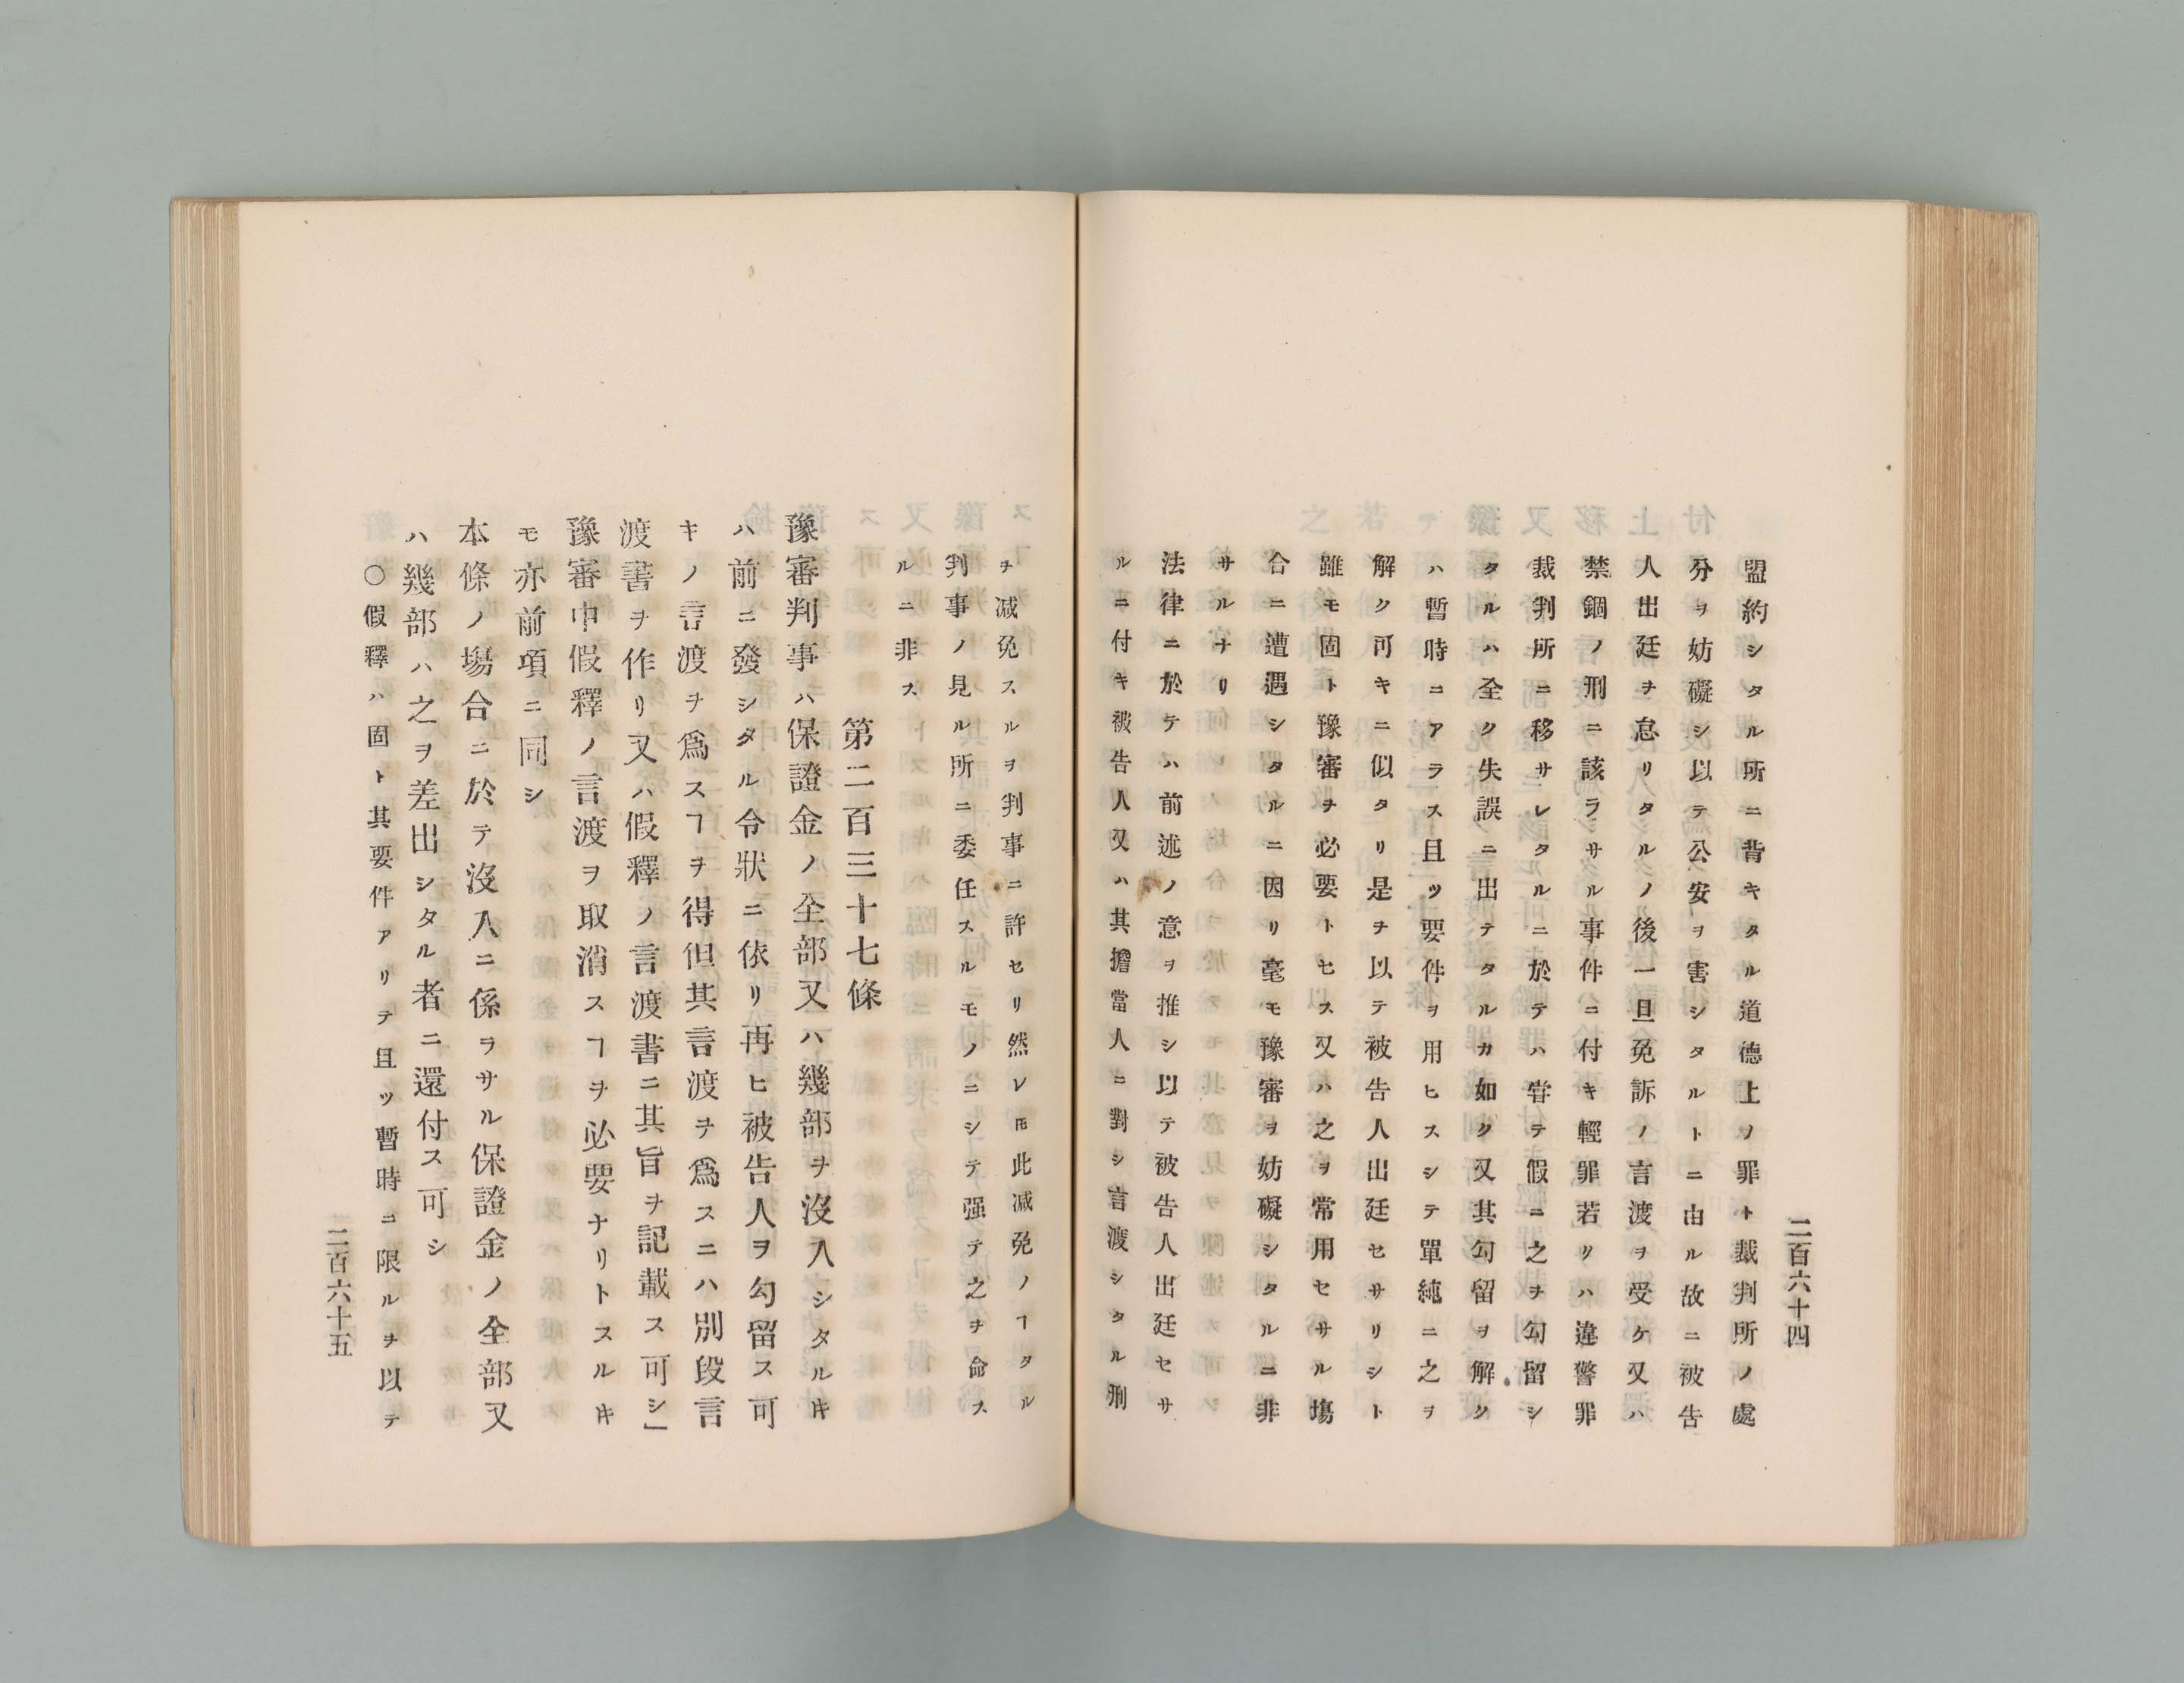 二百六十四
盟約シタル所ニ背キタル道德上ノ罪ト裁判所ノ處
分ヲ妨礙シ以テ公安ヲ害シタルトニ由ル故ニ被告
人出廷ヲ怠リタルノ後一旦免訴ノ言渡ヲ受ケ又ハ
禁錮ノ刑ニ該ラサル事件ニ付キ輕罪若クハ違警罪
裁判所ニ移サレタルニ於テハ甞テ假ニ之ヲ勾留シ
タルハ全ク失誤ニ出テタルカ如ク又其勾留ヲ解ク
ハ暫時ニアラス且ツ要件ヲ用ヒスシテ單純ニ之ヲ
解ク可キニ似タリ是ヲ以テ被告人出廷セサリシト
雖モ固ト豫審ヲ必要トセス又ハ之ヲ常用セサル塲
合ニ遭遇シタルニ因リ毫モ豫審ヲ妨礙シタルニ非
サルナリ
法律ニ於テハ前述ノ意ヲ推シ以テ被告人出廷セサ
ルニ付キ被告人又ハ其擔當人ニ對シ言渡シタル刑
ヲ减免スルヲ判事ニ許セリ然レ𪜈此减免ノヿタル
判事ノ見ル所ニ委任スルモノニシテ强テ之ヲ命ス
ルニ非ス
第二百三十七條
豫審判事ハ保證金ノ全部又ハ幾部ヲ沒入シタル𪜈
ハ前ニ發シタル令狀ニ依リ再ヒ被告人ヲ勾留ス可
キノ言渡ヲ爲スヿヲ得但其言渡ヲ爲スニハ別段言
渡書ヲ作リ又ハ假釋ノ言渡書ニ其旨ヲ記載ス可シ」
豫審中假釋ノ言渡ヲ取消スヿヲ必要ナリトスル𪜈
モ亦前項ニ同シ
本條ノ塲合ニ於テ沒入ニ係ラサル保證金ノ全部又
ハ幾部ハ之ヲ差出シタル者ニ還付ス可シ
〇假釋ハ固ト其要件アリテ且ツ暫時ニ限ルヲ以テ
二百六十五